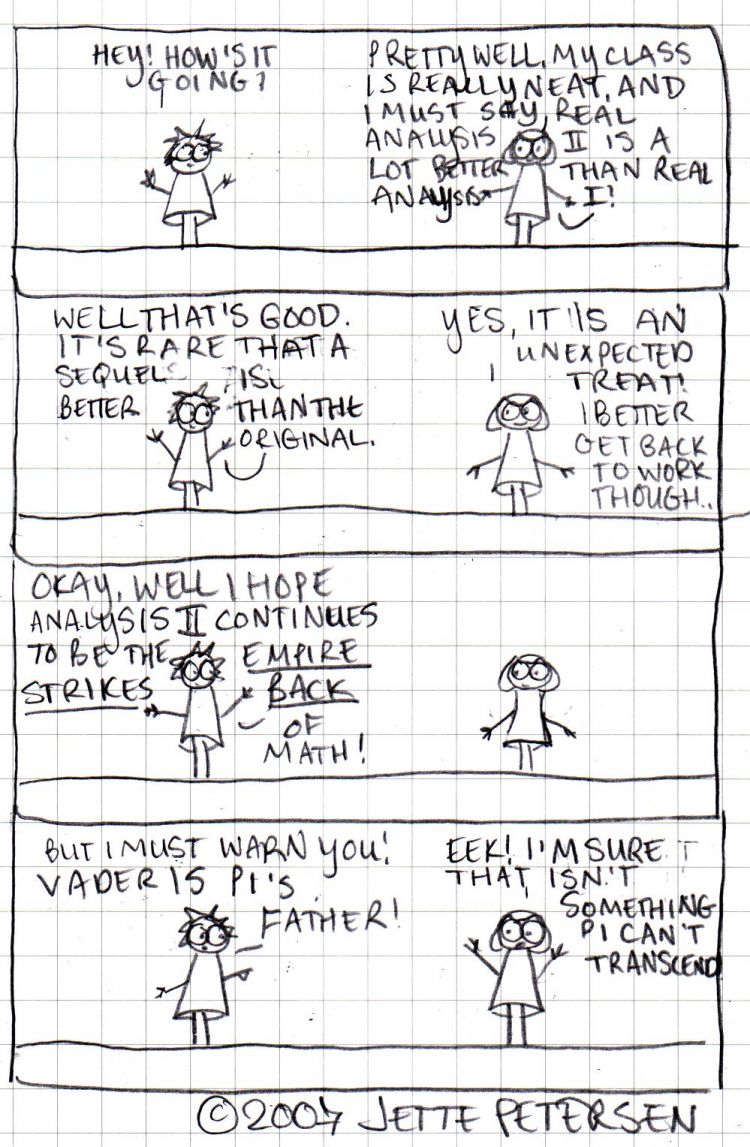 HEY! HOW'S IT
GOING?
PRETTY WELL. MY CLASS
IS REALLY NEAT, AND
I MUST SAY, REAL
ANALYSIS II IS A
LOT BETTER THAN REAL
ANALYSIS I!
WELL THAT'S GOOD.
IT'S RARE THAT A
SEQUEL IS
BETTER THAN THE
ORIGINAL.
YES, IT IS AN
UNEXPECTED
TREAT!
I BETTER
GET BACK
TO WORK
THOUGH..
OKAY, WELL I HOPE
ANALYSIS II CONTINUES
TO BE THE EMPIRE
STRIKES BACK
OF
MATH!
BUT I MUST WARN YOU!
VADER IS PI'S
FATHER!
EEK! I'M SURE
THAT ISN'T
SOMETHING
PI CAN'T
TRANSCEND
© 2007 JETTE PETERSEN